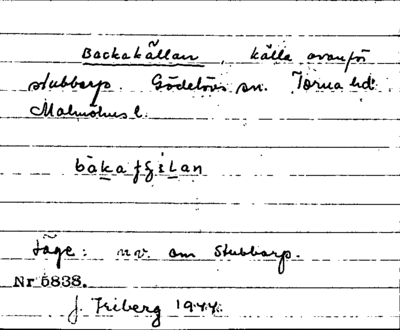 Backakällan, källa ovanför
Stubbarp. Gödelövs sn. Torna hd.
Malmöhus l.
Läge: n.v. om Stubbarp.
Nr 5838.
J. Friberg 1944.